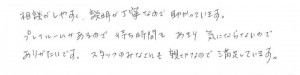 相談がしやすく、説明が丁寧なので助かっています。
プレイルームがあるので待ち時間もあまり気にならないので
ありがたいです。スタッフのみなさんも親切なので満足しています。